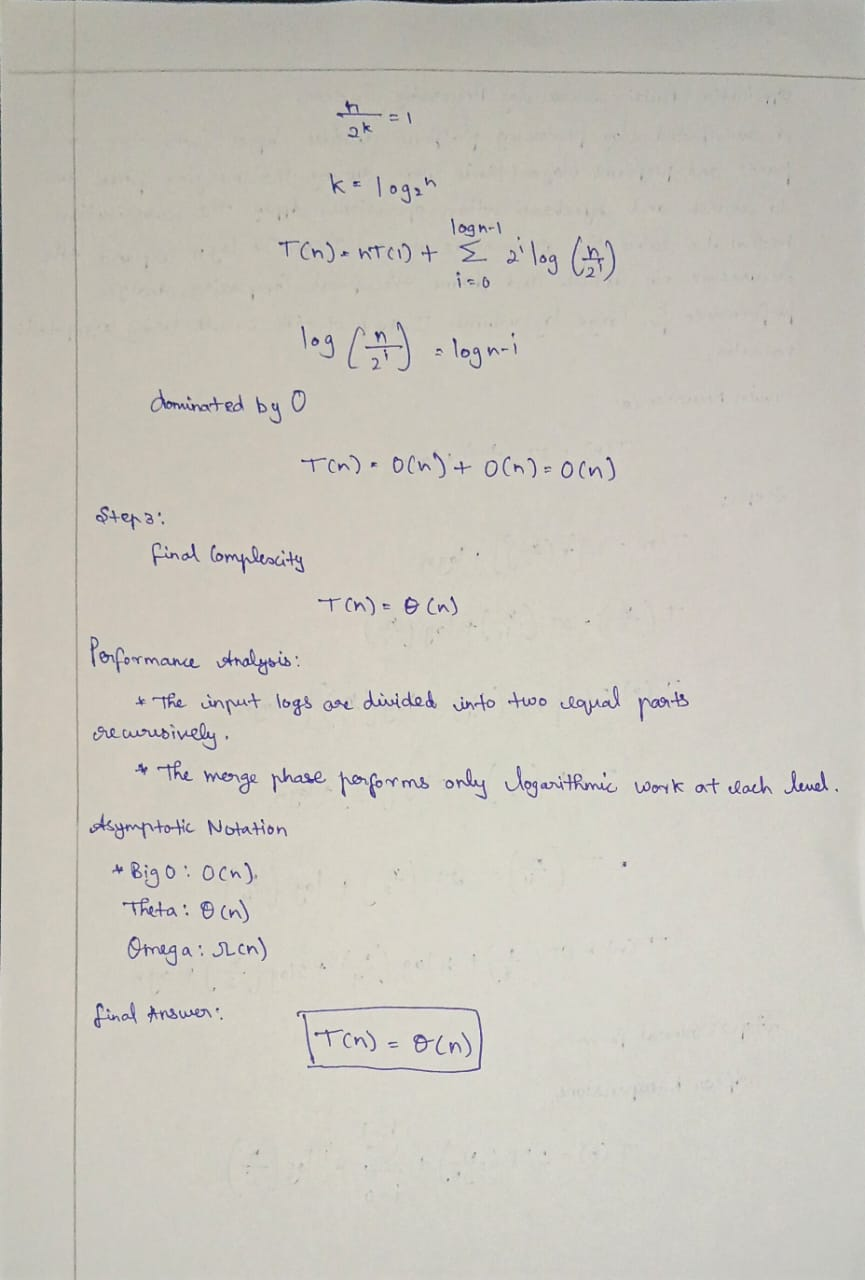 n/2^k = 1
k = log₂n
T(n) = nT(1) + Σ_{i=0}^{logn-1} 2^i log (n/2^i)
log (n/2^i) = logn-i
dominated by O
T(n) = O(n) + O(n) = O(n)
Step 3:
final Complexity
T(n) = θ(n)
Performance Analysis:
* The input logs are divided into two equal parts
recursively.
* The merge phase performs only logarithmic work at each level.
Asymptotic Notation
* Big O : O(n).
Theta : θ(n)
Omega : Ω(n)
final Answer:
T(n) = θ(n)